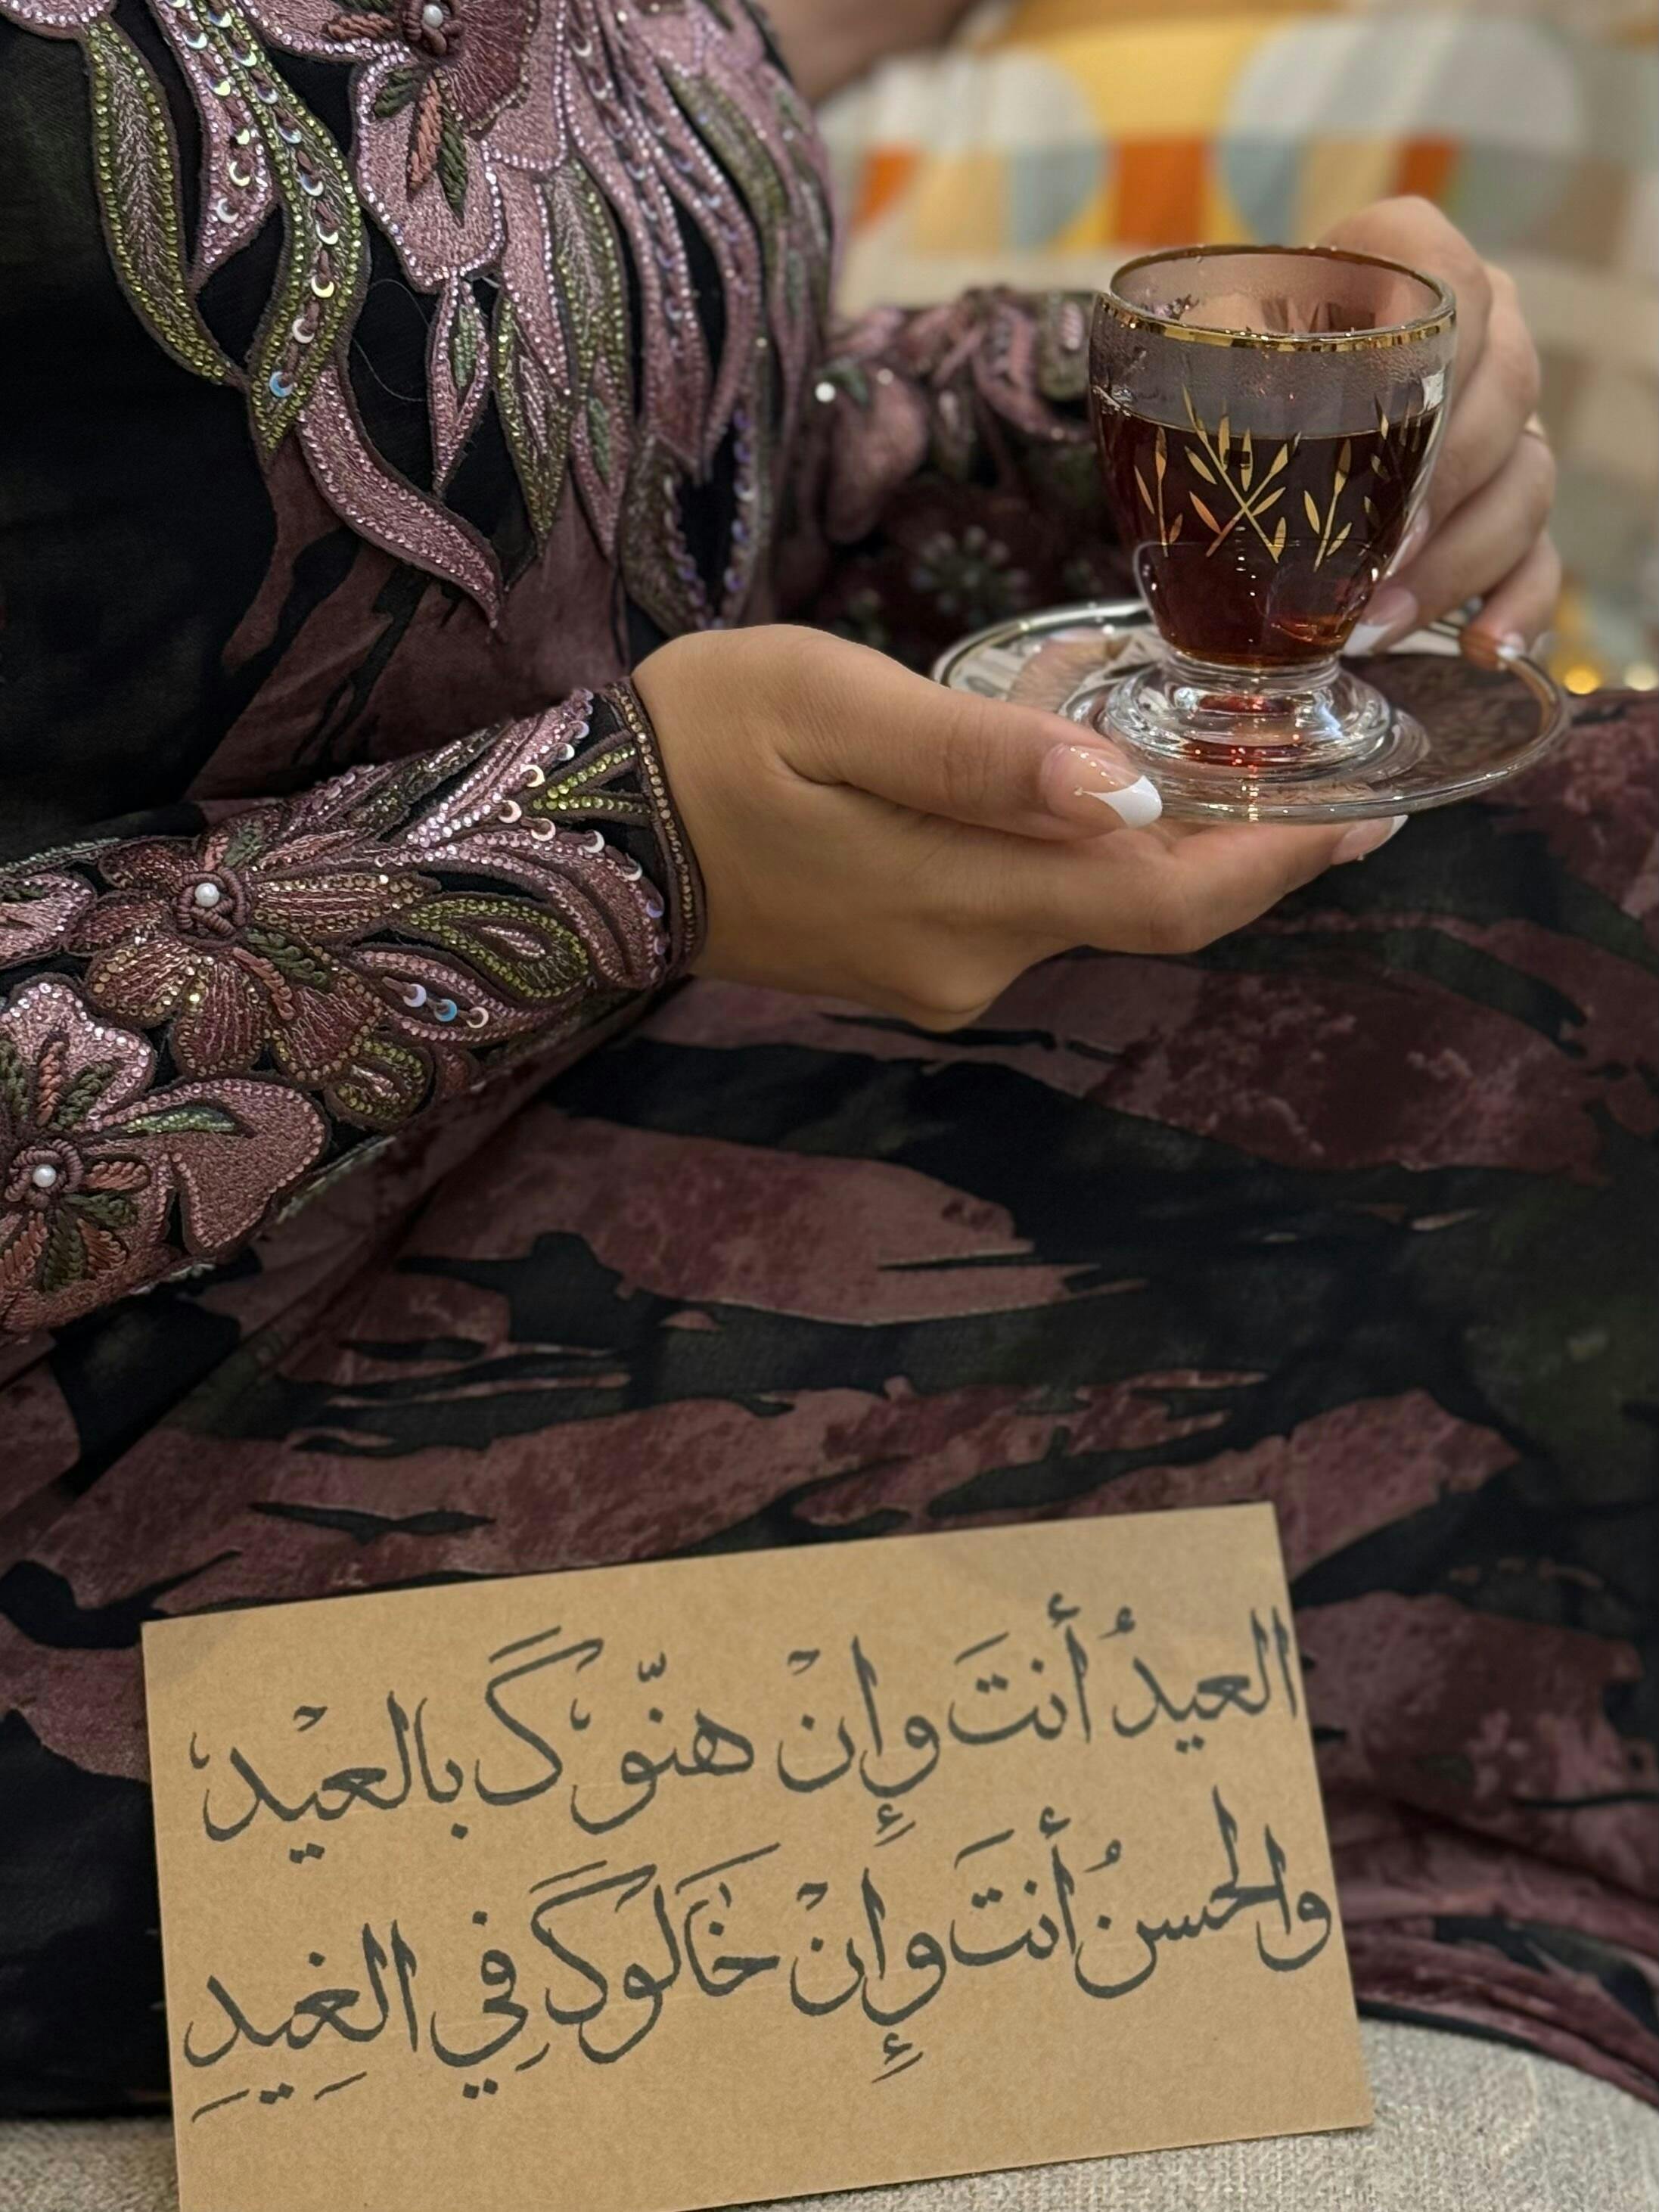 العيدُ أنتَ وإِنْ هنّوكَ بالعيْدِ
والحسنُ أنتَ وإِنْ خَالَوكَ في الغِيدِ